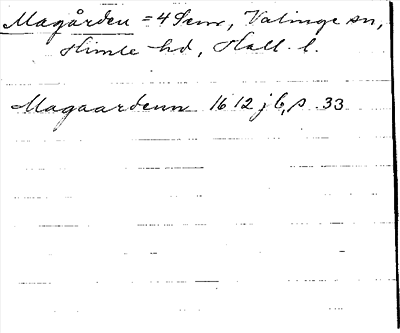 Magården = 4 Sena, Valinge sn,
Himle hd, Hall. l.
Magaardenn 1612 jb, s. 33